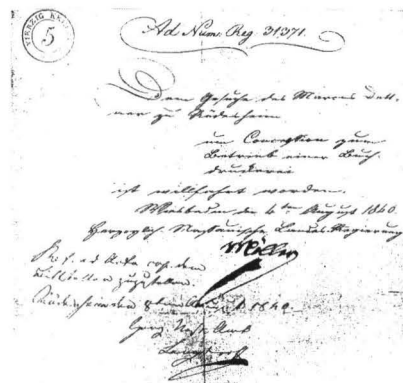 VIERZIG
5
Ad Num: Reg. 31371.
Dem Gesuche des Marcus
zu Rüdesheim
um Conception zum
Betrieb einer Buch-
druckerei
ist willfahrt worden.
Wiesbaden den 4ten August 1840.
Herzoglich Nassauische Landes-Regierung
Möller
ad Acta cop. dem
zuzustellen.
Rüdesheim den 1840
Herz. Nass. Amt